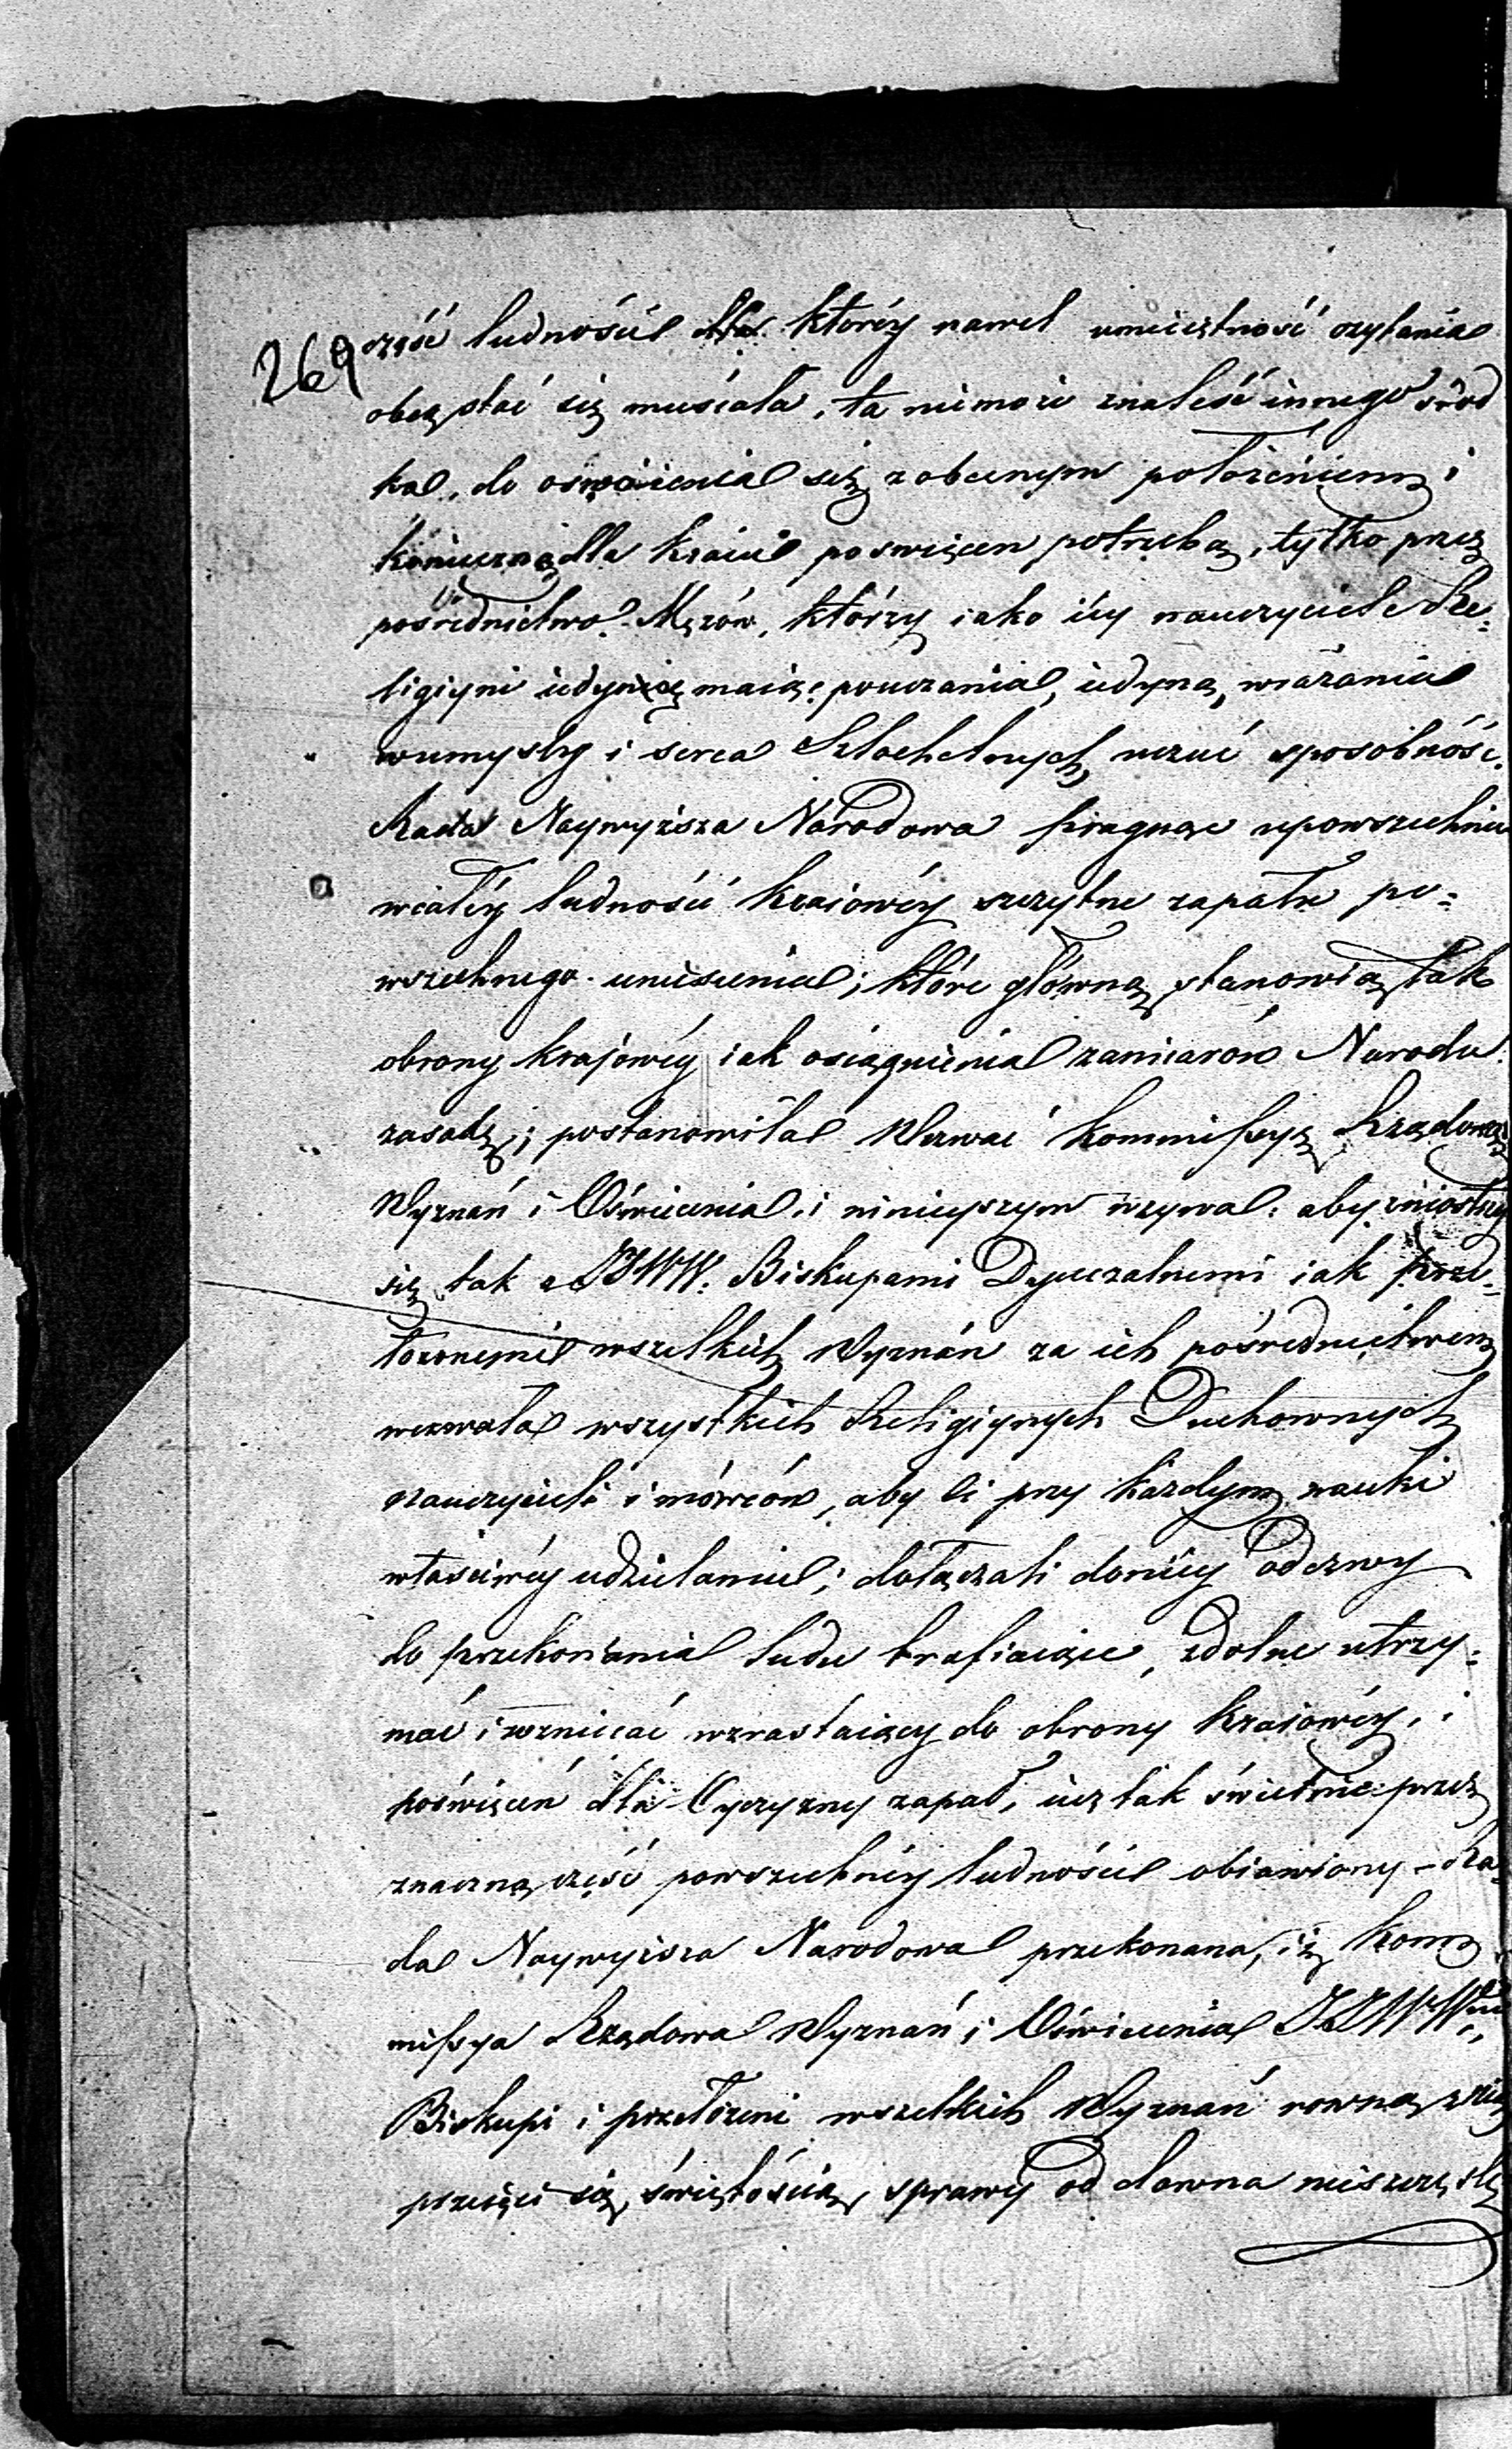 269
część ludności dla któréy nawet umieiętność czytania
obcą stać się musiała, ta niemoże znaleść innego środ
ka, do oswoienia się z obecnym położeniem i
konieczną dla kraiu poswięceń potrzebą, tylko przez
pośrednictwo Mężów, którzy iako iéy nauczyciele Re=
ligiyni iedyną maią pouczania, iedyną wrażania
wumysły i serca Szlachetnych uczuć sposobność.
Rada Naywyższa Narodowa pragnąc upowszechnić
wcałéy ludności kraiowéy szczytne zapały po=
wszechnego uniesienia; które główną stanowią tak
obrony krajowéy iak osiągnienia zamiarów Narodu
zasadę; postanowiła Wezwać Kommissyę Rządową
Wyznań i Oświecenia i ninieyszym wzywa: aby zniosłszy
się tak z JJWW. Biskupami Dyecezalnemi iak prze=
łożonemi wszelkich Wyznań za ich pośrednictwem
wezwała wszystkich Religiynych Duchownych
nauczycieli i mówców, aby ci przy każdym nauki
właściwéy udzielaniu; dołączali doniéy odezwy
do przekonania ludu trafiaiące, zdolne utrzy=
mać i wzniecać wzrastaiący do obrony kraiowéy, i
poświęceń dla Oyczyzny zapał, iuż tak świetnie przez
znaczną część powszechnéy ludności obiawiony – Ra
da Naywyższa Narodowa przekonana, iż Kom
missya Rządowa Wyznań i Oświecenia JJWW
Biskupi i przełożeni wszelkich Wyznań rowną
przeięci są świętością sprawy od dawna nieszczęsły